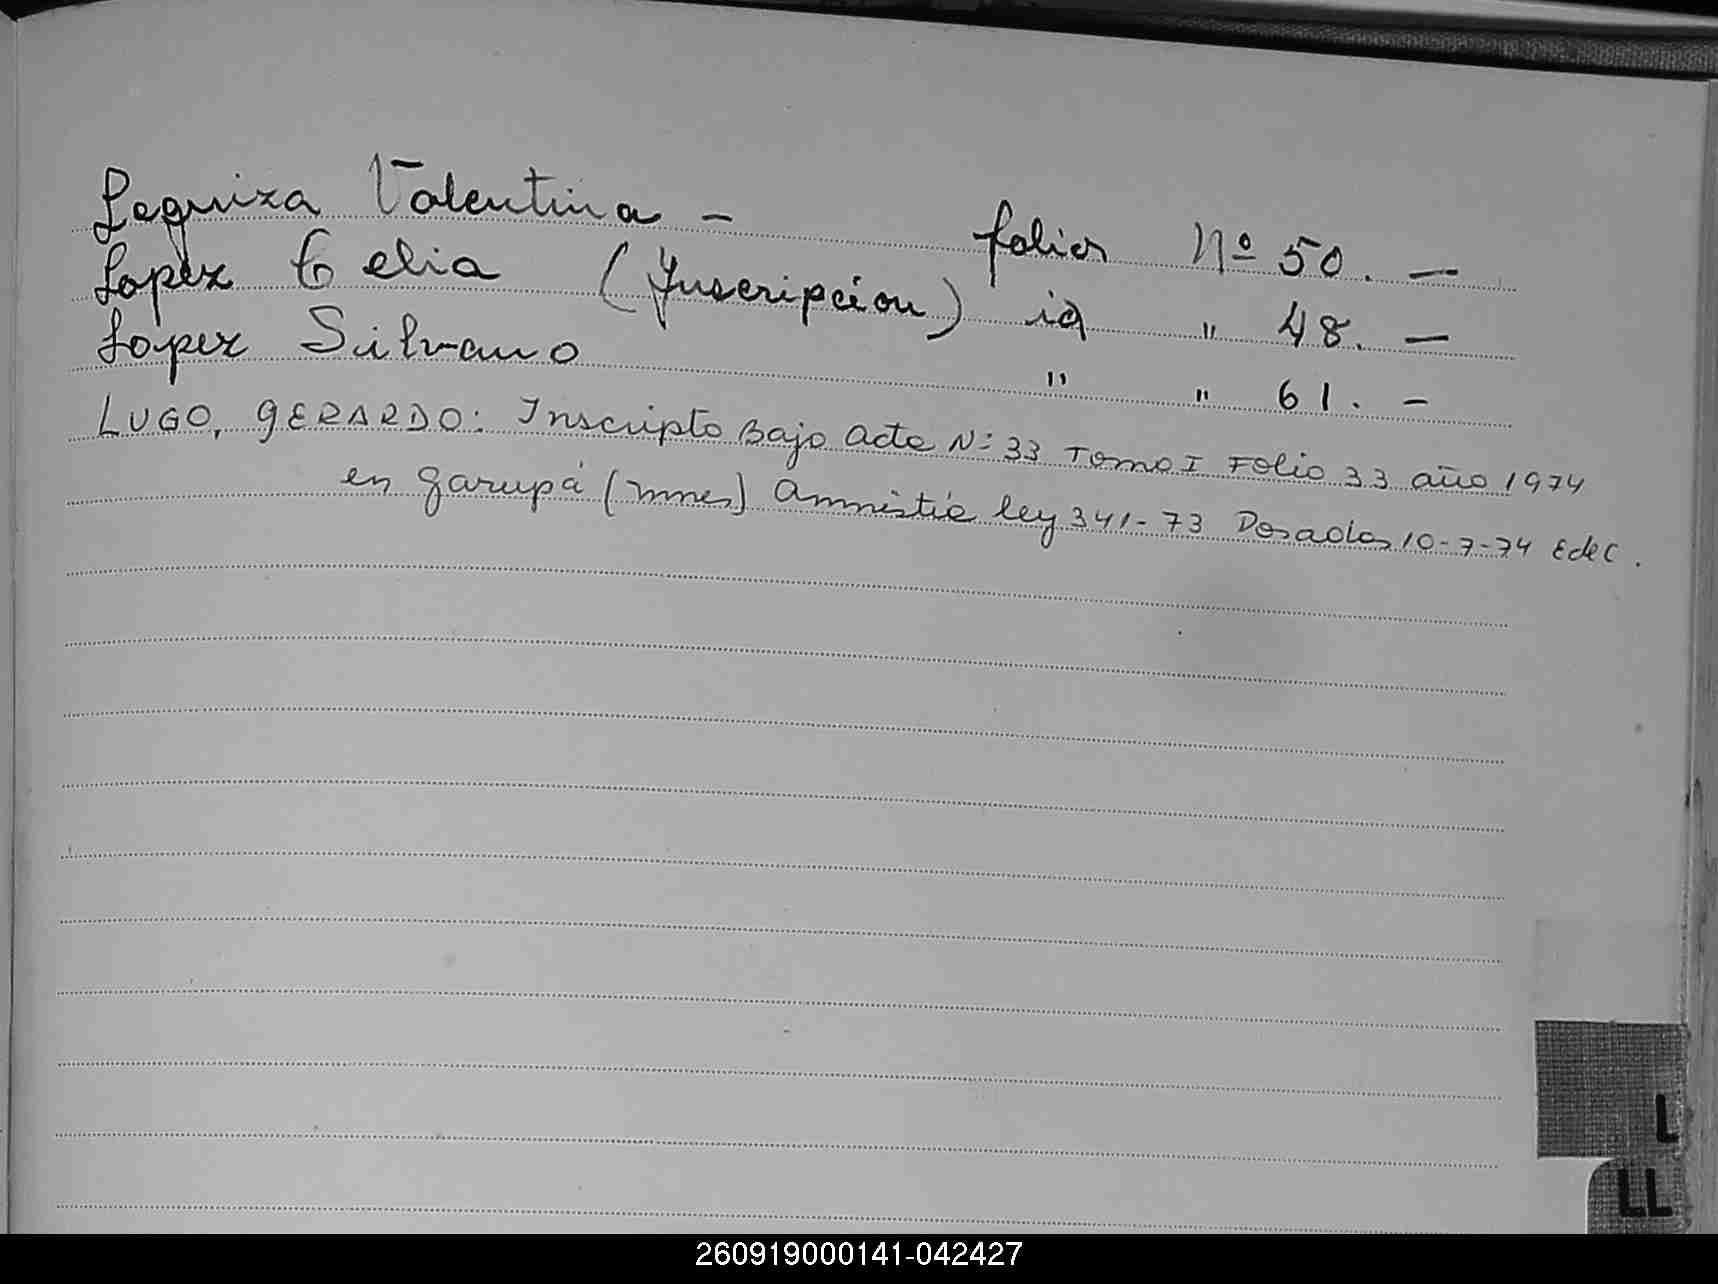 Leguiza Valentina - folios Nº 50. —
Lopez Celia (Inscripcion) id " 48. —
Lopez Silvano " " 61. -
LUGO, GERARDO: Inscripto Bajo acta Nº 33 Tomo I Folio 33 año 1974
en garupá (mnes) amnistía ley 341-73 Posadas 10-7-74 EdeC.
L
LL
260919000141-042427